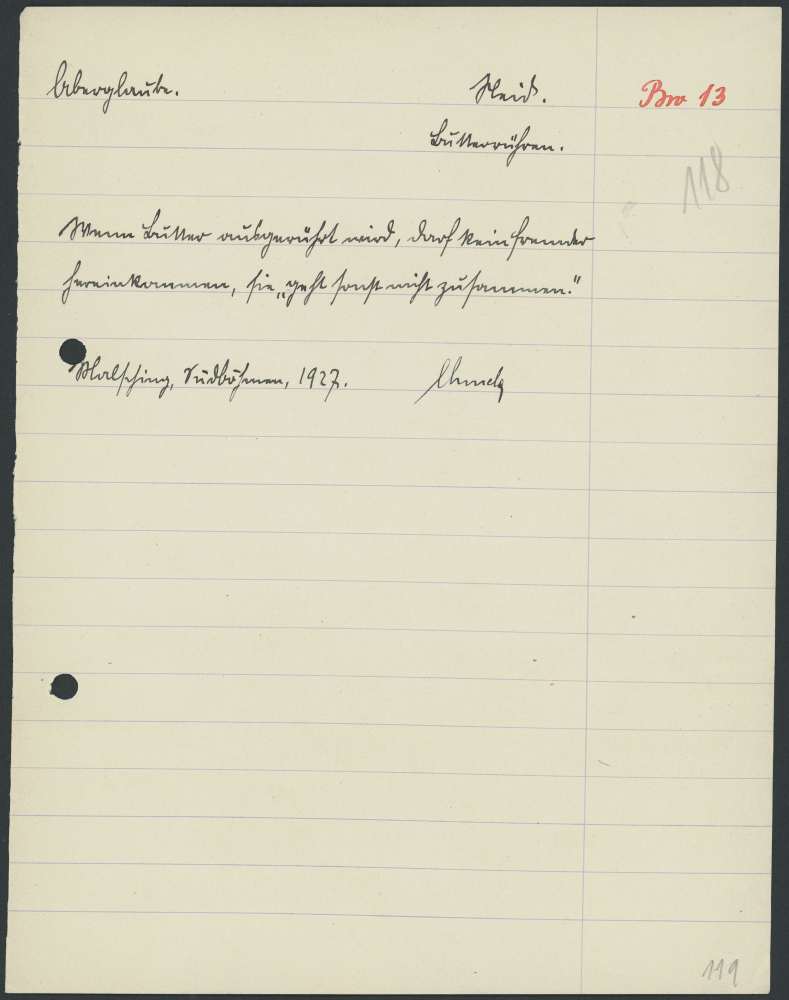 Aberglaube.
Neid.
Bro 13
Butterrühren.
118
Wenn Butter ausgerührt wird, darf kein fremder
hereinkommen, sie „geht sonst nicht zusammen.“
Malsching, Südböhmen, 1927.
119